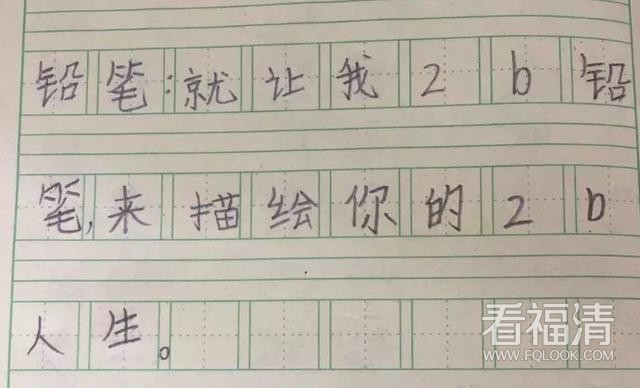 铅笔:就让我2b铅
笔,来描绘你的2b
人生。
看福清
WWW.FQLOOK.COM